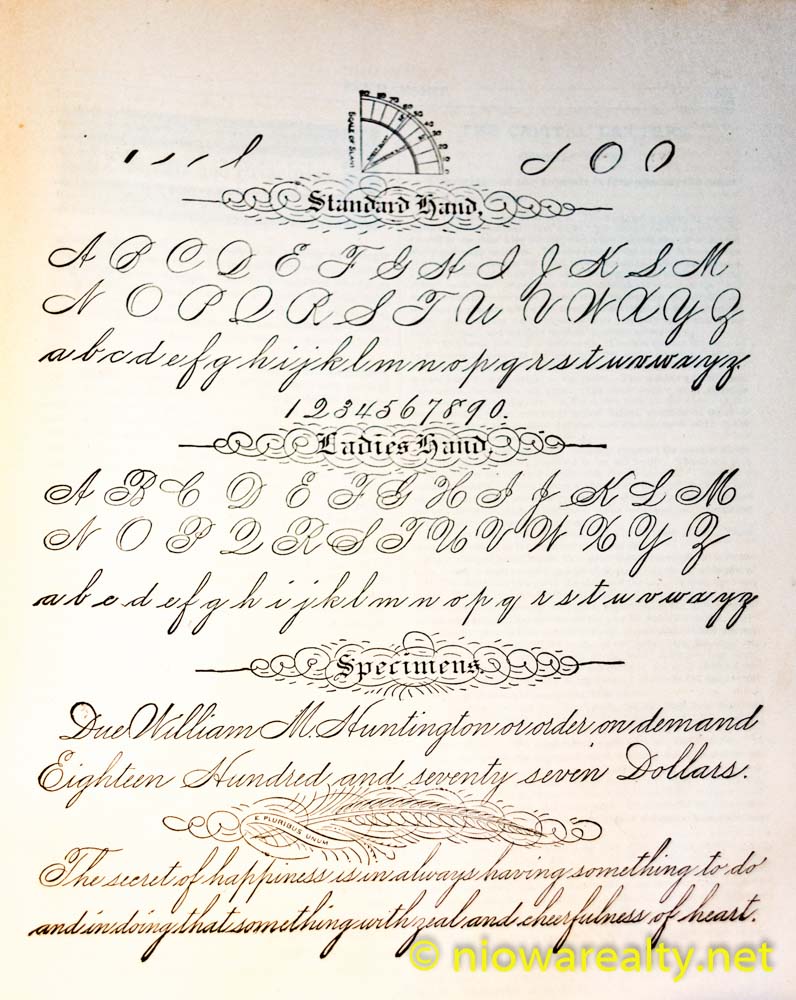 SCALE OF SLANT
Standard Hand.
A B C D E F G H I J K L M
N O P Q R S T U V W X Y Z
a b c d e f g h i j k l m n o p q r s t u v w x y z.
1 2 3 4 5 6 7 8 9 0.
Ladies Hand.
A B C D E F G H I J K L M
N O P Q R S T U V W X Y Z
a b c d e f g h i j k l m n o p q r s t u v w x y z
Specimens.
Due William M. Huntington or order on demand
Eighteen Hundred and seventy seven Dollars.
E PLURIBUS UNUM
The secret of happiness is in always having something to do
and in doing that something with zeal and cheerfulness of heart.
© niowarealty.net